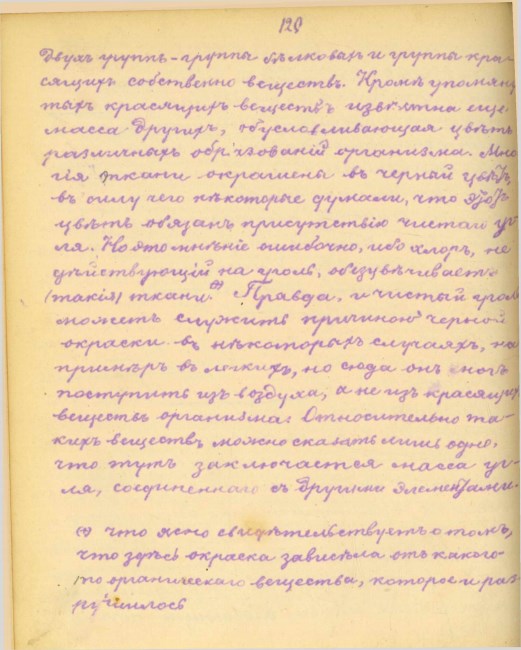 120
двухъ группъ - группы бѣлковых и группы кра-
сящихъ собственно веществъ. Кромѣ упомян
тыхъ красящихъ веществъ извѣстна еще
масса другихъ, обусловливающая цвѣтъ
различныхъ образований организма. Мно
гiя ткани окрашены въ черный цвѣтъ,
въ силу чего нѣкоторые думали, что этотъ
цвѣтъ обязанъ присутствiю чистаго уг
ля. Но это мнѣнiе ошибочно, ибо хлоръ, не
дѣйствующiй на уголь, обезцвѣчиваетъ
(такiя) ткани (+) Правда, и чистый уголь
можетъ служить причиною черной
окраски въ нѣкоторыхъ случаяхъ, на
примѣръ въ легкихъ, но сюда онъ могъ
поступить изъ воздуха, а не изъ красящихъ
веществъ организма. Относительно та-
кихъ веществъ можно сказать лишь одно,
что тутъ заключается масса уг-
ля, соединеннаго съ другими элементами.
(+) что ясно свидѣтельствуетъ о томъ,
что здѣсь окраска зависѣла отъ какого-
то органическаго вещества, которое и раз
рушилось